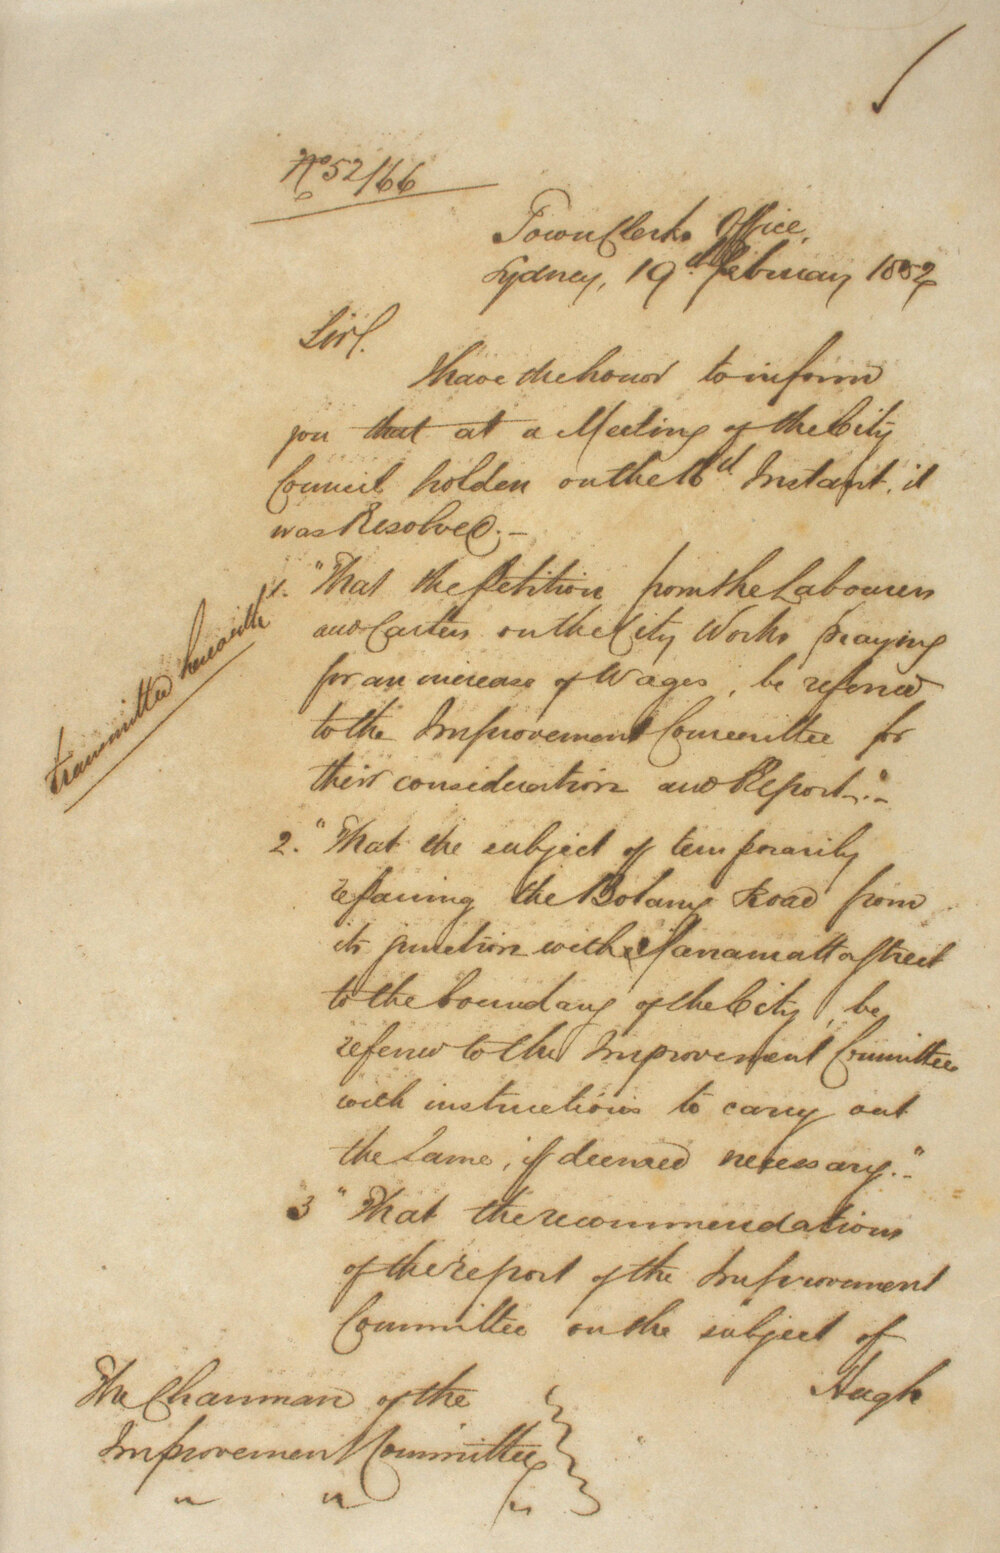 No 52/66
Town Clerks Office,
Sydney, 19th February 1852
Sir,
I have the honor to inform
you that at a Meeting of the City
Council holden on the 16th Instant, it
was Resolved. -
transmitted herewith
1. "That the Petition from the Labourers
and Carters on the City Works praying
for an increase of Wages, be referred
to the Improvement Committee for
their consideration and Report."
2. "That the subject of temporarily
repairing the Botany Road from
its junction with Parramatta Street
to the boundary of the City, be
referred to the Improvement Committee
with instructions to carry out
the same, if deemed necessary."
3 "That the recommendations
of the report of the Improvement
Committee on the subject of
Hugh
The Chairman of the
Improvement Committee
" " "